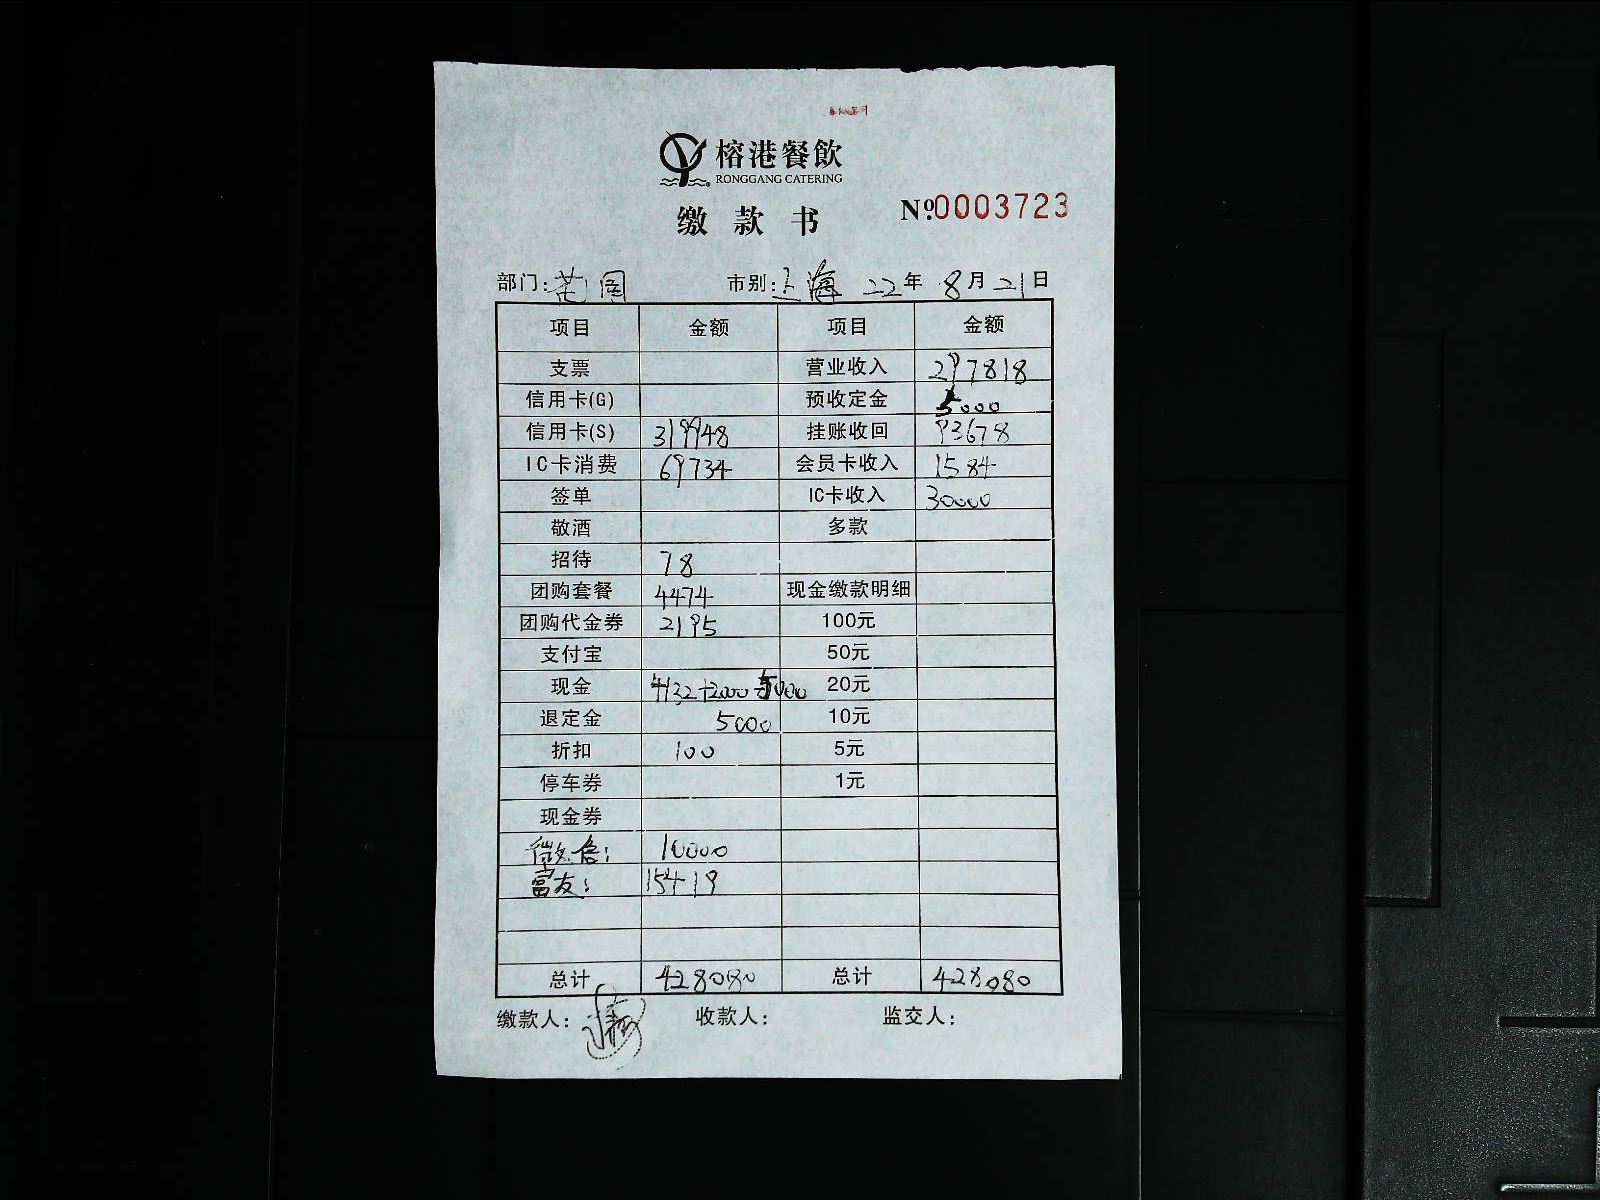 榕港餐飲
RONGGANG CATERING
缴款书 Nº.0003723
部门: 花园 市别: 上海 22年 8月21日
项目 金额 项目 金额
支票 营业收入 297818
信用卡(G) 预收定金 5000
信用卡(S) 319948 挂账收回 93678
IC卡消费 69734 会员卡收入 1584
签单 IC卡收入 30000
敬酒 多款
招待 78
团购套餐 4474 现金缴款明细
团购代金券 2195 100元
支付宝 50元
现金 4132+2000-5000 20元
退定金 5000 10元
折扣 100 5元
停车券 1元
现金券
微信: 10000
富友: 15419
总计 428080 总计 428080
缴款人: 收款人: 监交人: